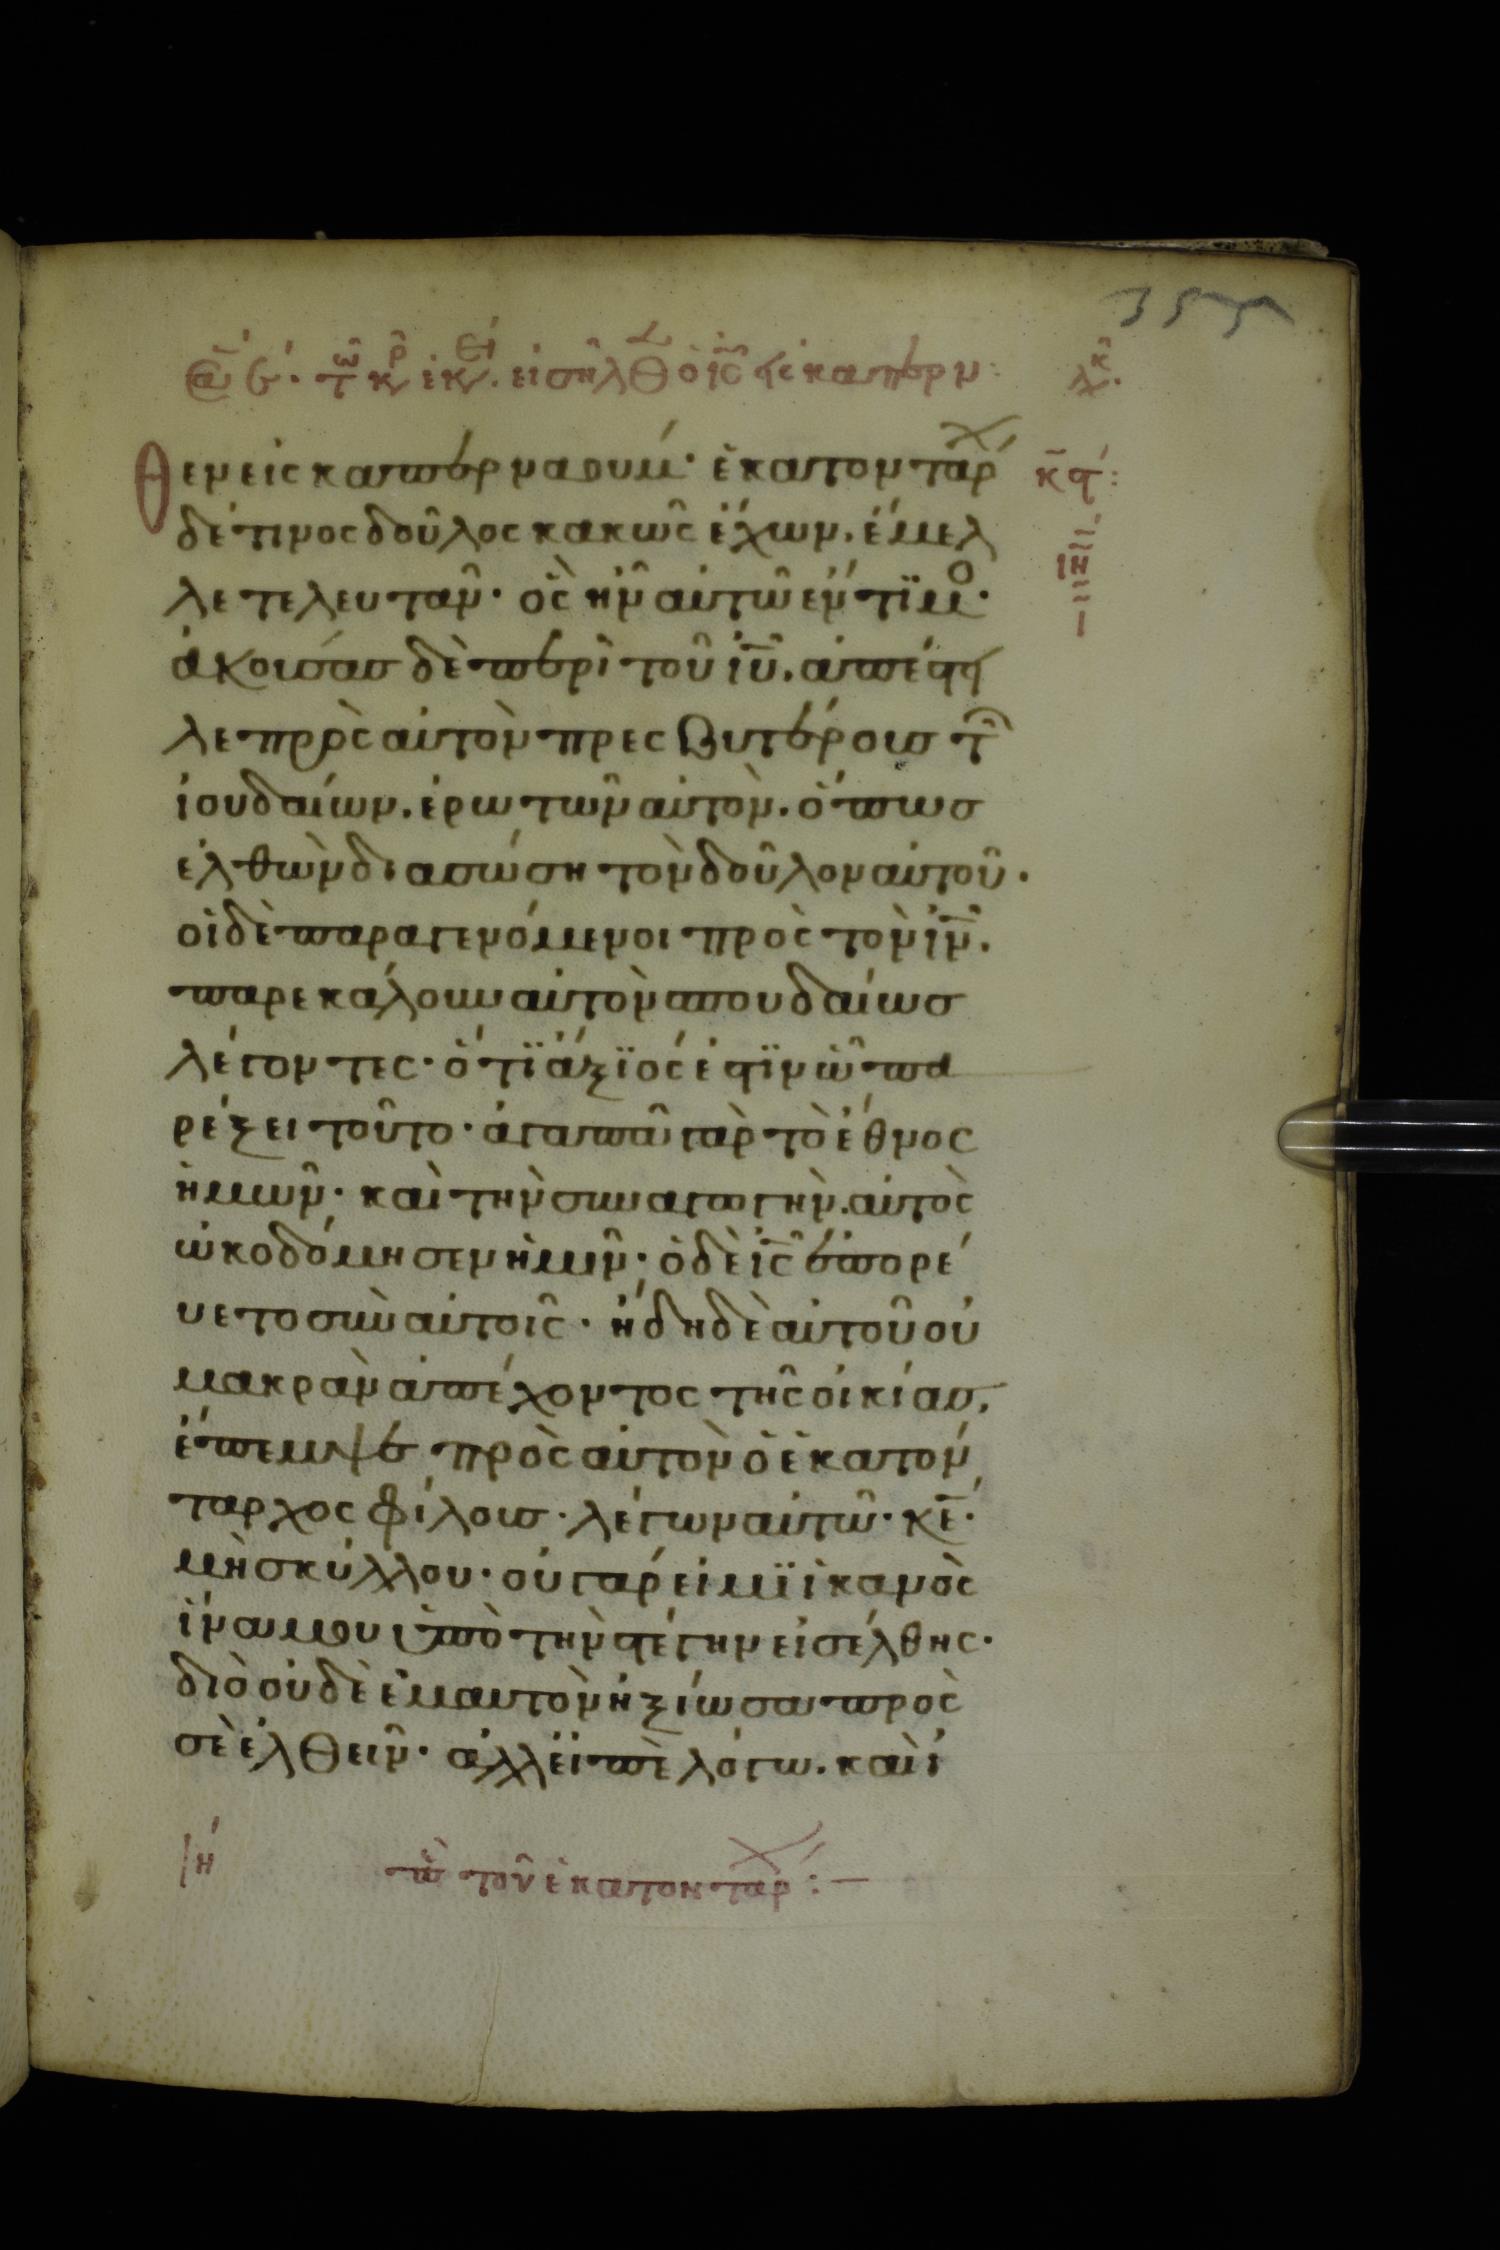 εἰσῆλθ ὁ ἰς εἰς καπερν:
Θεν εἰς καπερναουμ· ἑκατονταρχ
δέ τινος δοῦλος κακῶς ἔχων. ἔμελ
λε τελευτᾶν· ὃς ἦν αὐτῶ ἔντϊμο·
ἀκούσας δὲ περὶ τοῦ ἰυ. ἀπέστει
λε πρὸς αὐτὸν πρεσβυτέρους τῶν
ἰουδαίων. ἐρωτῶν αὐτὸν. ὅπως
ἐλθὼν διασώση τὸν δοῦλον αὐτοῦ.
οἱ δὲ παραγενόμενοι πρὸς τὸν ἰν.
παρεκάλουν αὐτὸν σπουδαίως
λέγοντες· ὅτϊ ἄξϊός ἐστϊν ὧ πα
ρέξει τοῦτο· ἀγαπᾶ γὰρ τὸ ἔθνος
ἡμῶν· καὶ τὴν συναγωγὴν. αὐτὸς
ὠκοδόμησεν ἡμῖν· ὁ δὲ ἰς ἐπορέ
υετο σὺν αὐτοῖς· ἤδη δὲ αὐτοῦ οὐ
μακρὰν ἀπέχοντος τῆς οἰκίας.
ἔπεμψε πρὸς αὐτὸν ὁ ἑκατόν
ταρχος φίλους· λέγων αὐτῶ· κε·
μὴ σκύλλου· οὐ γάρ εἰμϊ ἱκανὸς
ἵνα μου ὑπὸ τὴν στέγην εἰσέλθης·
διὸ οὐδὲ ἐμαυτὸν ἠξίωσα πρὸς
σὲ ἐλθεῖν· ἀλλ εἰπὲ λόγω. καὶ ἰ
ιη τοῦ ἑκατονταρχ:—